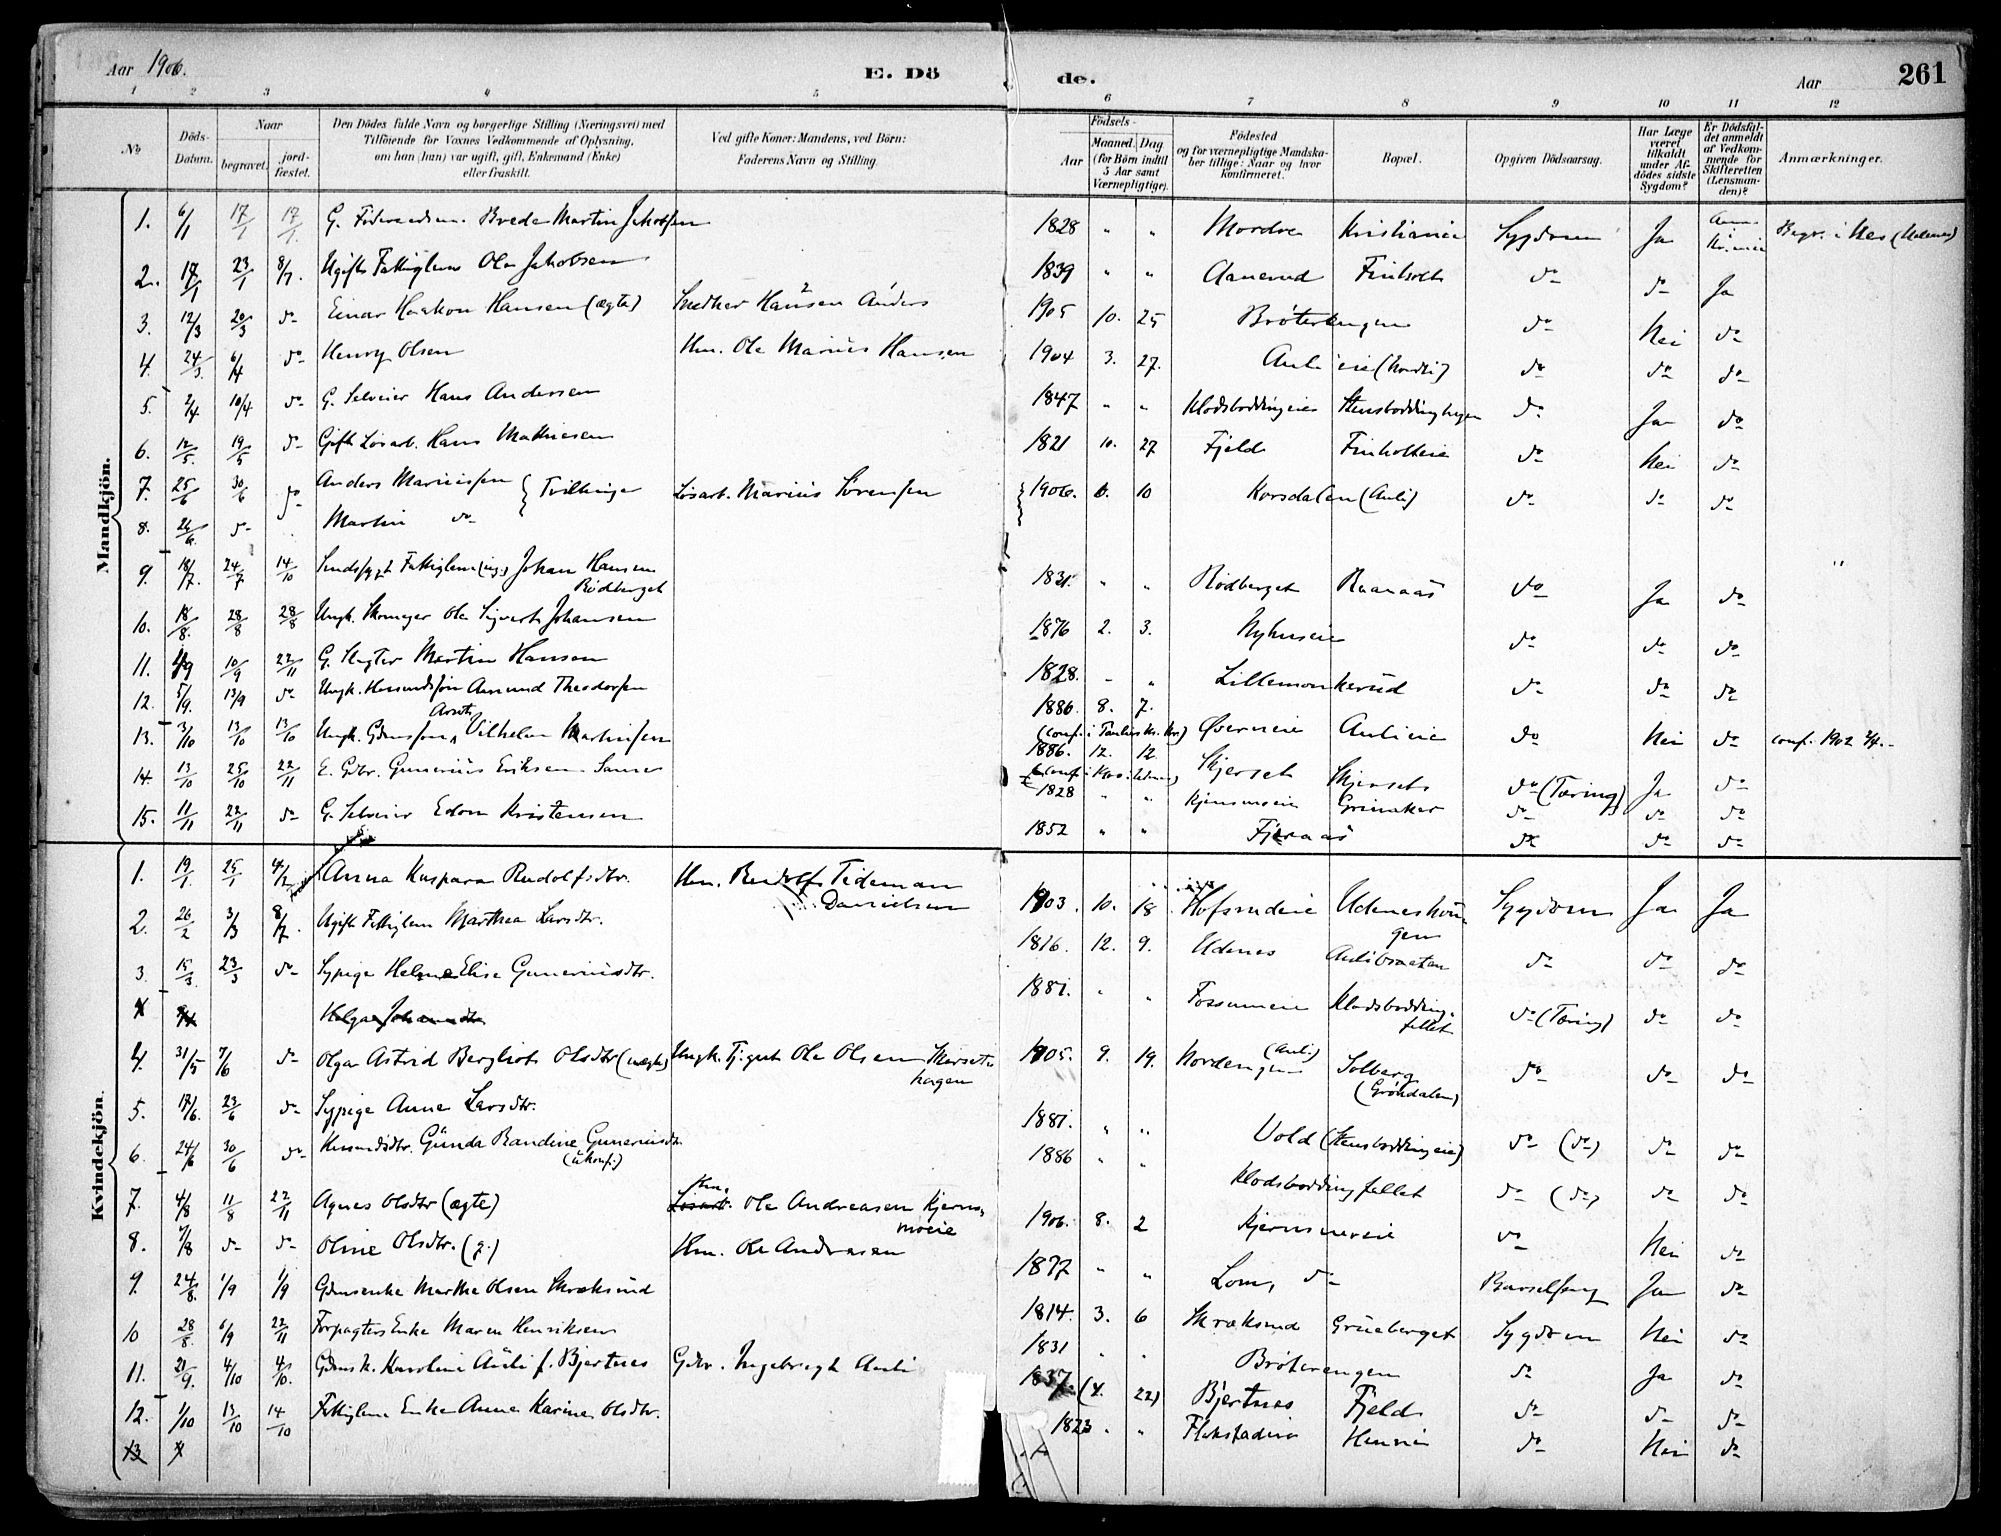 Aar 1906. E. Döde. Aar 261
1 2 3 4 5 6 7 8 9 10 11 12
No
Döds-Datum.
Naar
begravet.
jord-fæstet.
Den Dödes fulde Navn og borgerlige Stilling (Næringsvei) med
Tilföiende for Voxnes Vedkommende af Oplysning,
om han (hun) var ugift, gift, Enkemand (Enke)
eller fraskilt.
Ved gifte Koner: Mandens, ved Börn:
Faderens Navn og Stilling.
Födsels-
Aar
Maaned. Dag
(for Börn indtil
5 Aar samt
Værnepligtige).
Födested
og for værnepligtige Mandska-
ber tillige: Naar og hvor
Konfirmeret.
Bopæl.
Opgiven Dödsaarsag.
Har Læge
været
tilkaldt
under Af-
dödes sidste
Sygdom?
Er Dödsfal-
det anmeldt
af Vedkom-
mende for
Skifteretten
(Lensman-
den)?
Anmærkninger.
Mandkjön.
1. 6/1 17/1 17/1 G. Brede Martin Jakobsen 1828 " " Kristiania Sygdom Ja
2. 17/1 23/1 8/7. Ugift Fattiglem Ola Jakobsen 1839 " " Aanerud Finholt do do Ja
3. 12/3 20/3 do Einar Haakon Hansen (ægte) Snedker Hansen Anders 1905 10. 25 Bröterengen do Nei do
4. 24/3. 6/4 do Henry Olsen Hm. Ole Marius Hansen 1904 3. 27. Auli eie do do do
5. 2/4 10/4 do G. Selveier Hans Andersen 1847 " " Klodsboddingeie Stensboddinghagen do Ja do
6. 12/5. 19/5 do Gift Løsarb. Hans Mathiesen 1821 10. 27 Fjeld Finholteie do Nei do
7. 25/6 30/6 do Anders Mariussen } Tvillinger Løsarb. Marius Sørensen 1906. 6. 10 Korsdalen (Auli) do do do
8. 26/6. do Martin do
9. 18/7. 24/7 14/10 Sindssygt Fattiglem (ug.) Johan Hansen
Rödberget 1831. " " Rödberget Raanaas do Ja do
10. 18/8. 28/8 28/8 Ungk. Ole Sigvart Johansen 1876 2. 3. Nyhuseie do do do
11. 4/9 10/9 22/11 G. Martin Hansen 1828. " " Lillemonkerud do do do
12. 5/9. 13/9 do Ungk. Husmandssøn Amund Theodorsen 1886 8. 7.
13. 3/10 13/10 13/10 Ungk. Gdmssøn Arnt Vilhelm Martinsen 1886. 12. 12 Øverneie Aulieie do Nei do conf. 1902
14. 13/10 25/10 22/11 E. Gbr. Gunerius Eriksen 1828 " " Skjerset Skjerset do (Tæring) Ja do
15. 11/11 22/11 do G. Selveier Edon Kristensen Kjernsmoeie Grinaker do do do
1852 " " Fjeraas do do do
Kvindekjön.
1. 19/1. 25/1 4/2 Anna Kaspara Rudolfsdtr. Hm. Rudolf Tideman
Danielsen 1903. 10. 18 Hofsrudeie Udneshougen Sygdom Ja Ja
2. 26/2 3/3 8/7. Ugift Fattiglem Marthea Larsdtr. 1816. 12. 9. Udenes Aulibraaten do do do
3. 15/3. 23/3 do Sypige Helene Elise Guneriusdtr. 1881. " " Fossumeie Klodsbodding-
fellet do (Tæring) do do
4. 31/5 7/6 do Olga Astrid Bergliot Olsdtr (uægte) Ungk. Tj.gut Ole Olsen
hagen 1905. 9. 19. Nordengen (Auli) Solberg
(Gröndalen) do do do
5. 17/6. 23/6 do Sypige Anne Larsdtr. 1881. " " Vold (Stensboddingeie) do (do) do do
6. 24/6 30/6 do Husmdsdtr. Gunda Randine Guneriusdtr.
(ukonf.) 1886 " " Klodsboddingfellet do (do) do do
7. 4/8 11/8 22/11 Agnes Olsdtr (ægte) Hm. Ole Andreasen Kjerns-
moeie 1906. 8. 2 do Nei do
8. 7/8 do do Oline Olsdtr. (g.) Hm. Ole Andreasen 1877 " " Lom, do Barselseng Ja do
9. 24/8. 1/9 1/9 Gdmsenke Marthe Olsen Skræksrud 1814. 3. 6 Skræksrud Grueberget Sygdom Nei do
10 28/8. 6/9 22/11 Forpagters Enke Maren Henriksen 1831 " " Bröterengen do Ja do
11. 21/9. 4/10 4/10. Gdmsk. Karoline Auli f. Bjertnes Gdbr. Ingebrigt Auli 1837. (4. 22) Bjertnes Fjeld do do do
12. 1/10 13/10 14/10 Fattiglem Enke Anne Karine Olsdtr. 1823 " " do Nei do